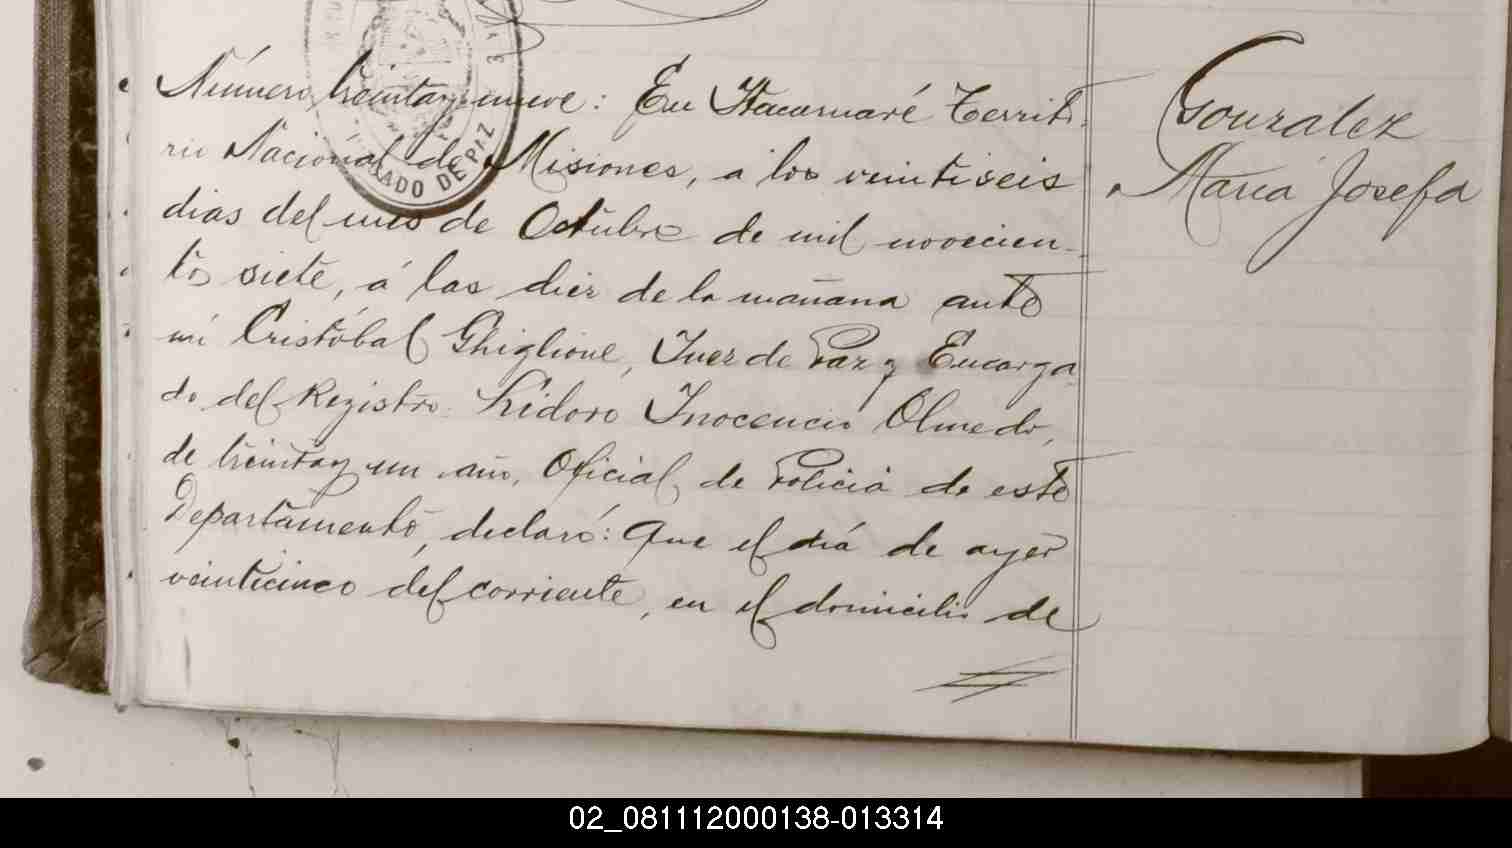 Número treinta y nueve: En Itacaruaré Territo-
rio Nacional de Misiones, á los veintiseis
dias del mes de Octubre de mil novecien-
tos siete, á las diez de la mañana ante
mi Cristóbal Ghiglione, Juez de Paz y Encarga
do del Registro: Isidoro Inocencio Olmedo,
de treinta y un año, Oficial de Policia de este
Departamento, declaró: Que el dia de ayer
veinticinco del corriente, en el domicilio de
Gonzalez
Maria Josefa
JUZGADO DE PAZ
02_081112000138-013314